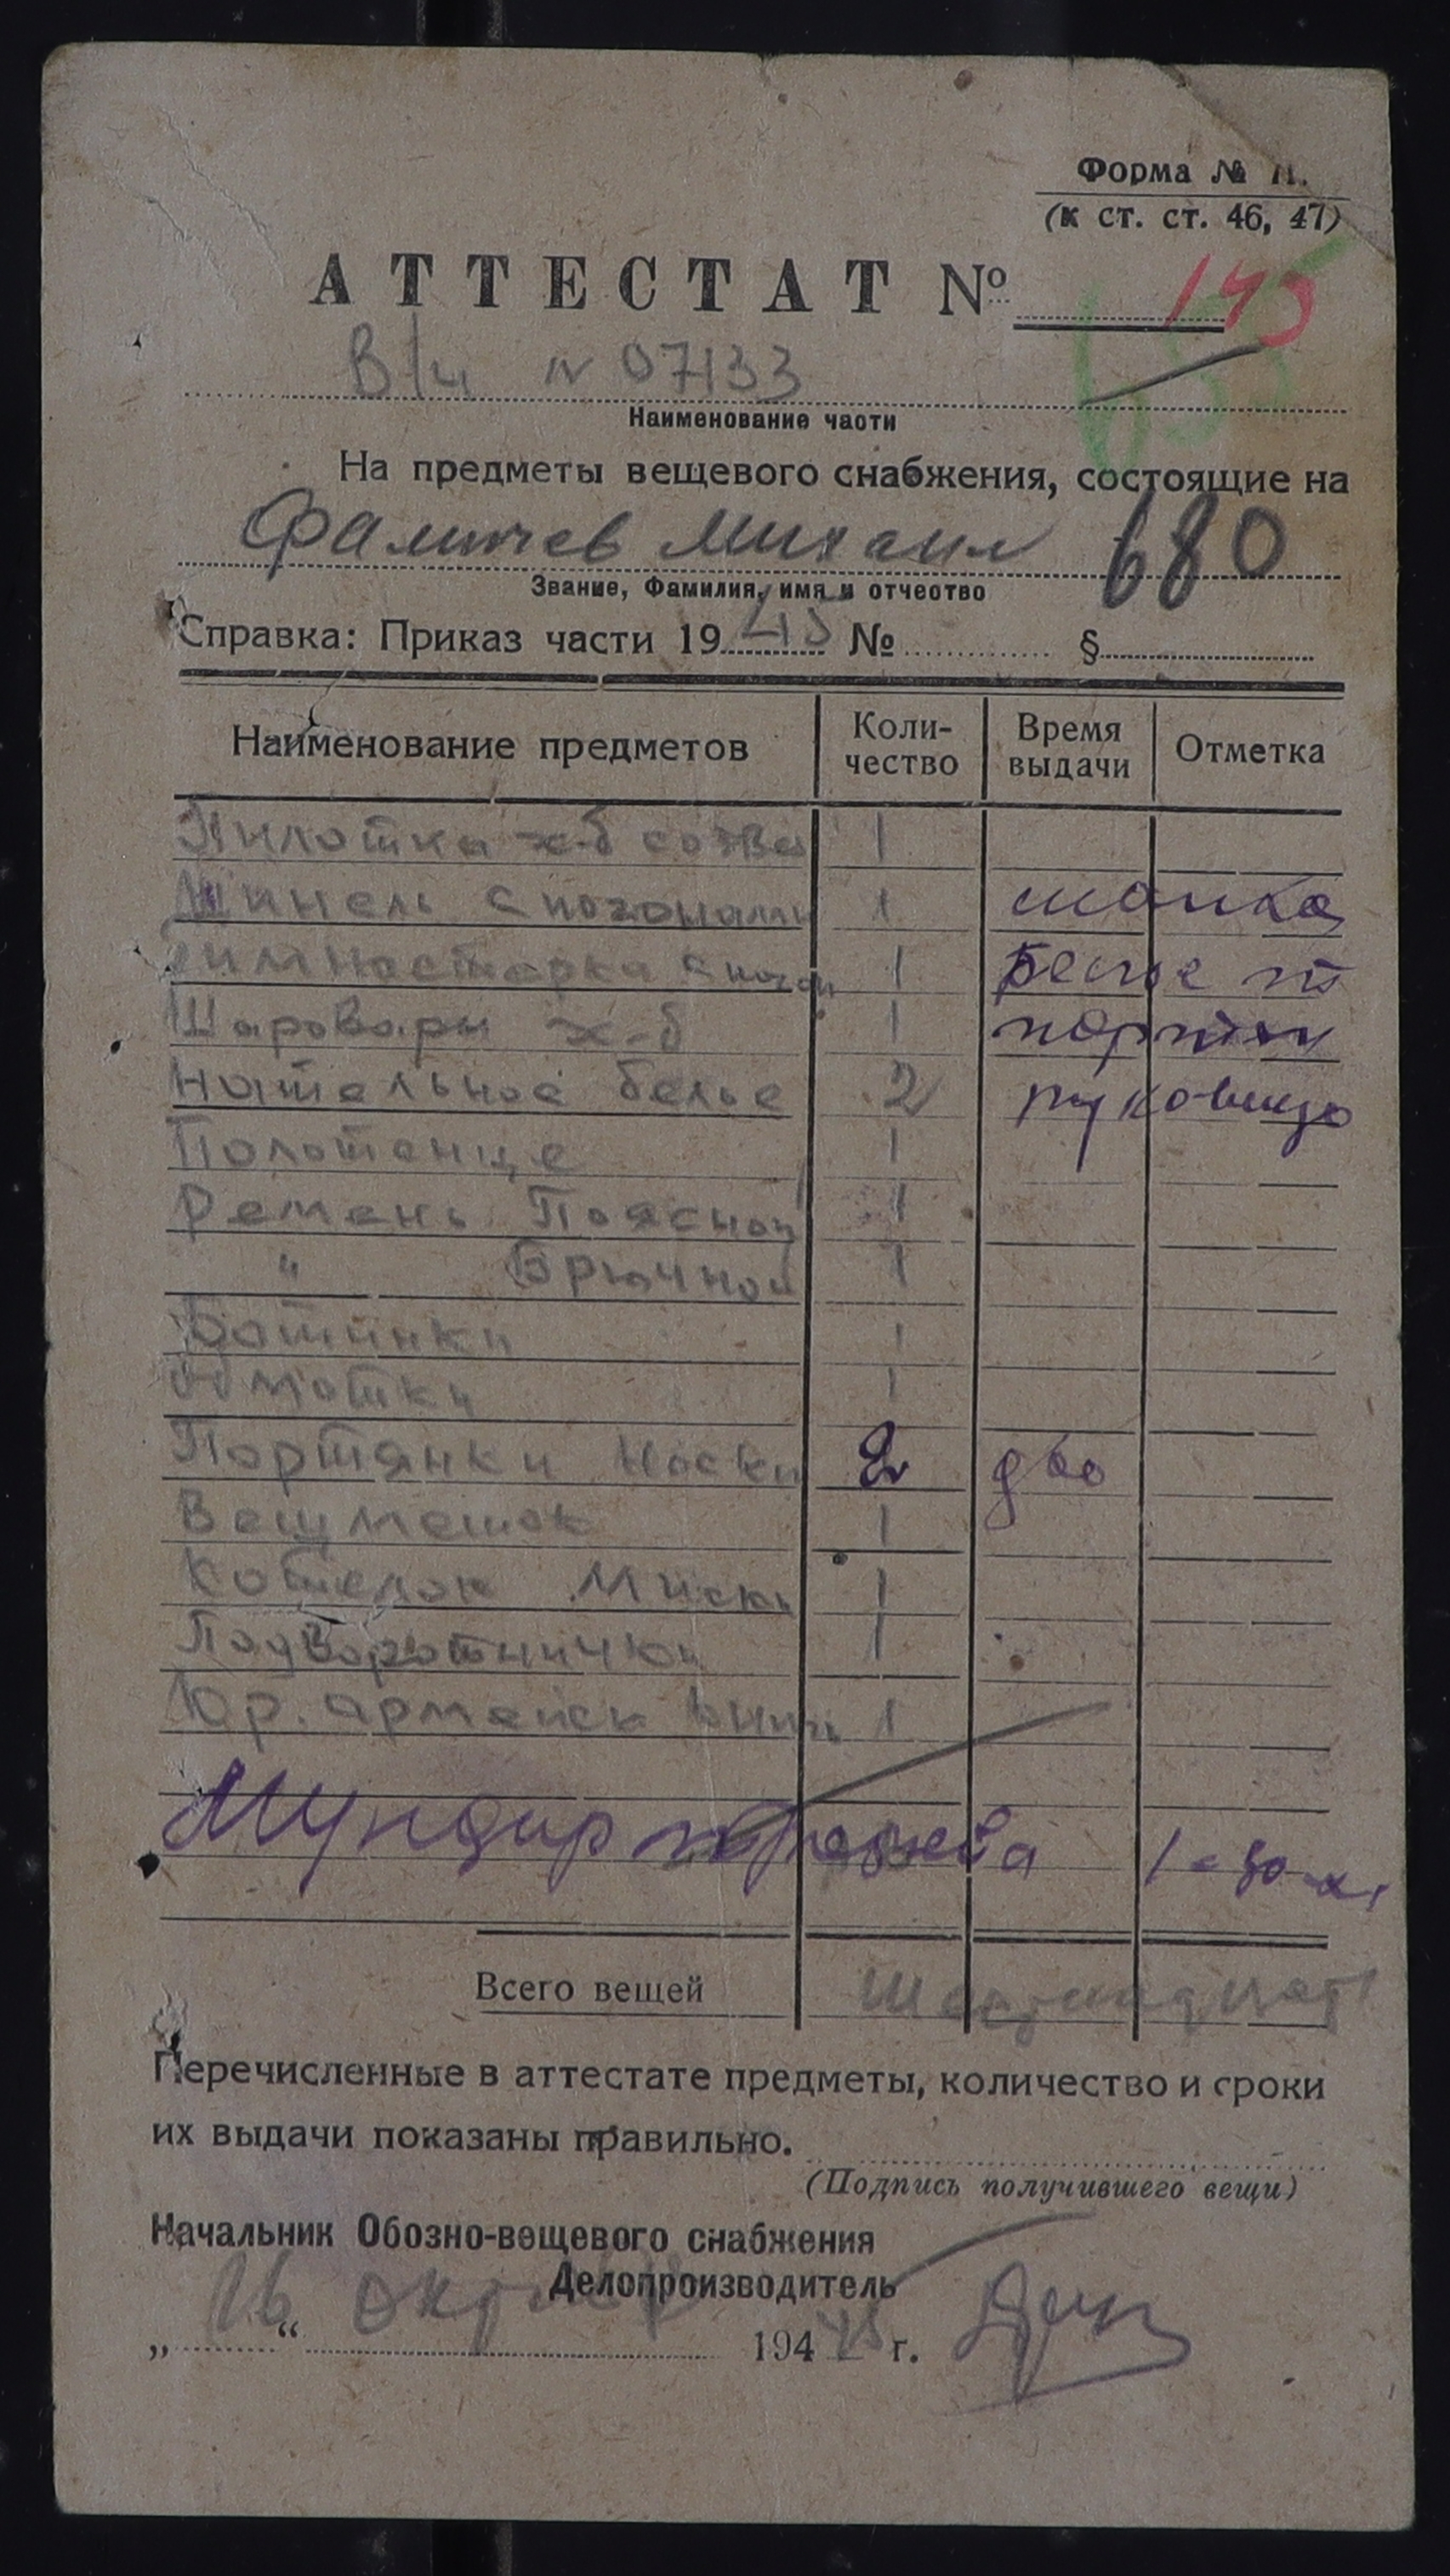 Форма №
(к ст. ст. 46, 47)
АТТЕСТАТ № 145
В/ч № 07133
Наименование части
На предметы вещевого снабжения, состоящие на
Фаличев Михаил 680
Звание, Фамилия, имя и отчество
Справка: Приказ части 19 45 № §
Наименование предметов Коли-чество Время выдачи Отметка
Пилотка х-б созвез 1
Шинель с погонами 1 шапка
Гимнастерка с погон 1 Белье
Шаровары х-б 1 портян
Нательное белье 2 руковицы
Полотенце 1
Ремень Поясной 1
" Брючной 1
Ботинки 1
Обмотки 1
Портянки носки 2 две
Вещмешок 1
Котелок Миска 1
Подворотнички 1
Кр. армейск книж 1
Мундир
Всего вещей Шестнадцат
Перечисленные в аттестате предметы, количество и сроки
их выдачи показаны правильно.
(Подпись получившего вещи)
Начальник Обозно-вещевого снабжения
Делопроизводитель
„ 16 “ октября 194 45 г.